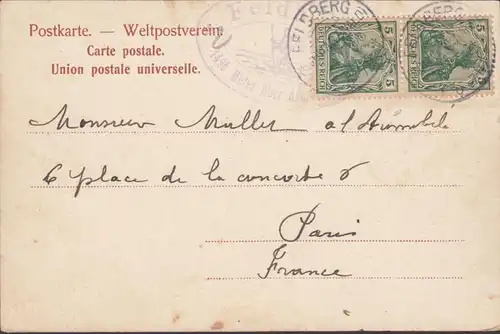 Postkarte. — Weltpostverein.
Carte postale.
Union postale universelle.
Feld
FELDBERG
BERG
5 5
5 5
DEUTSCHES REICH
DEUTSCHES REICH
Monsieur Muller
6 place de la concorde 6
Paris
France